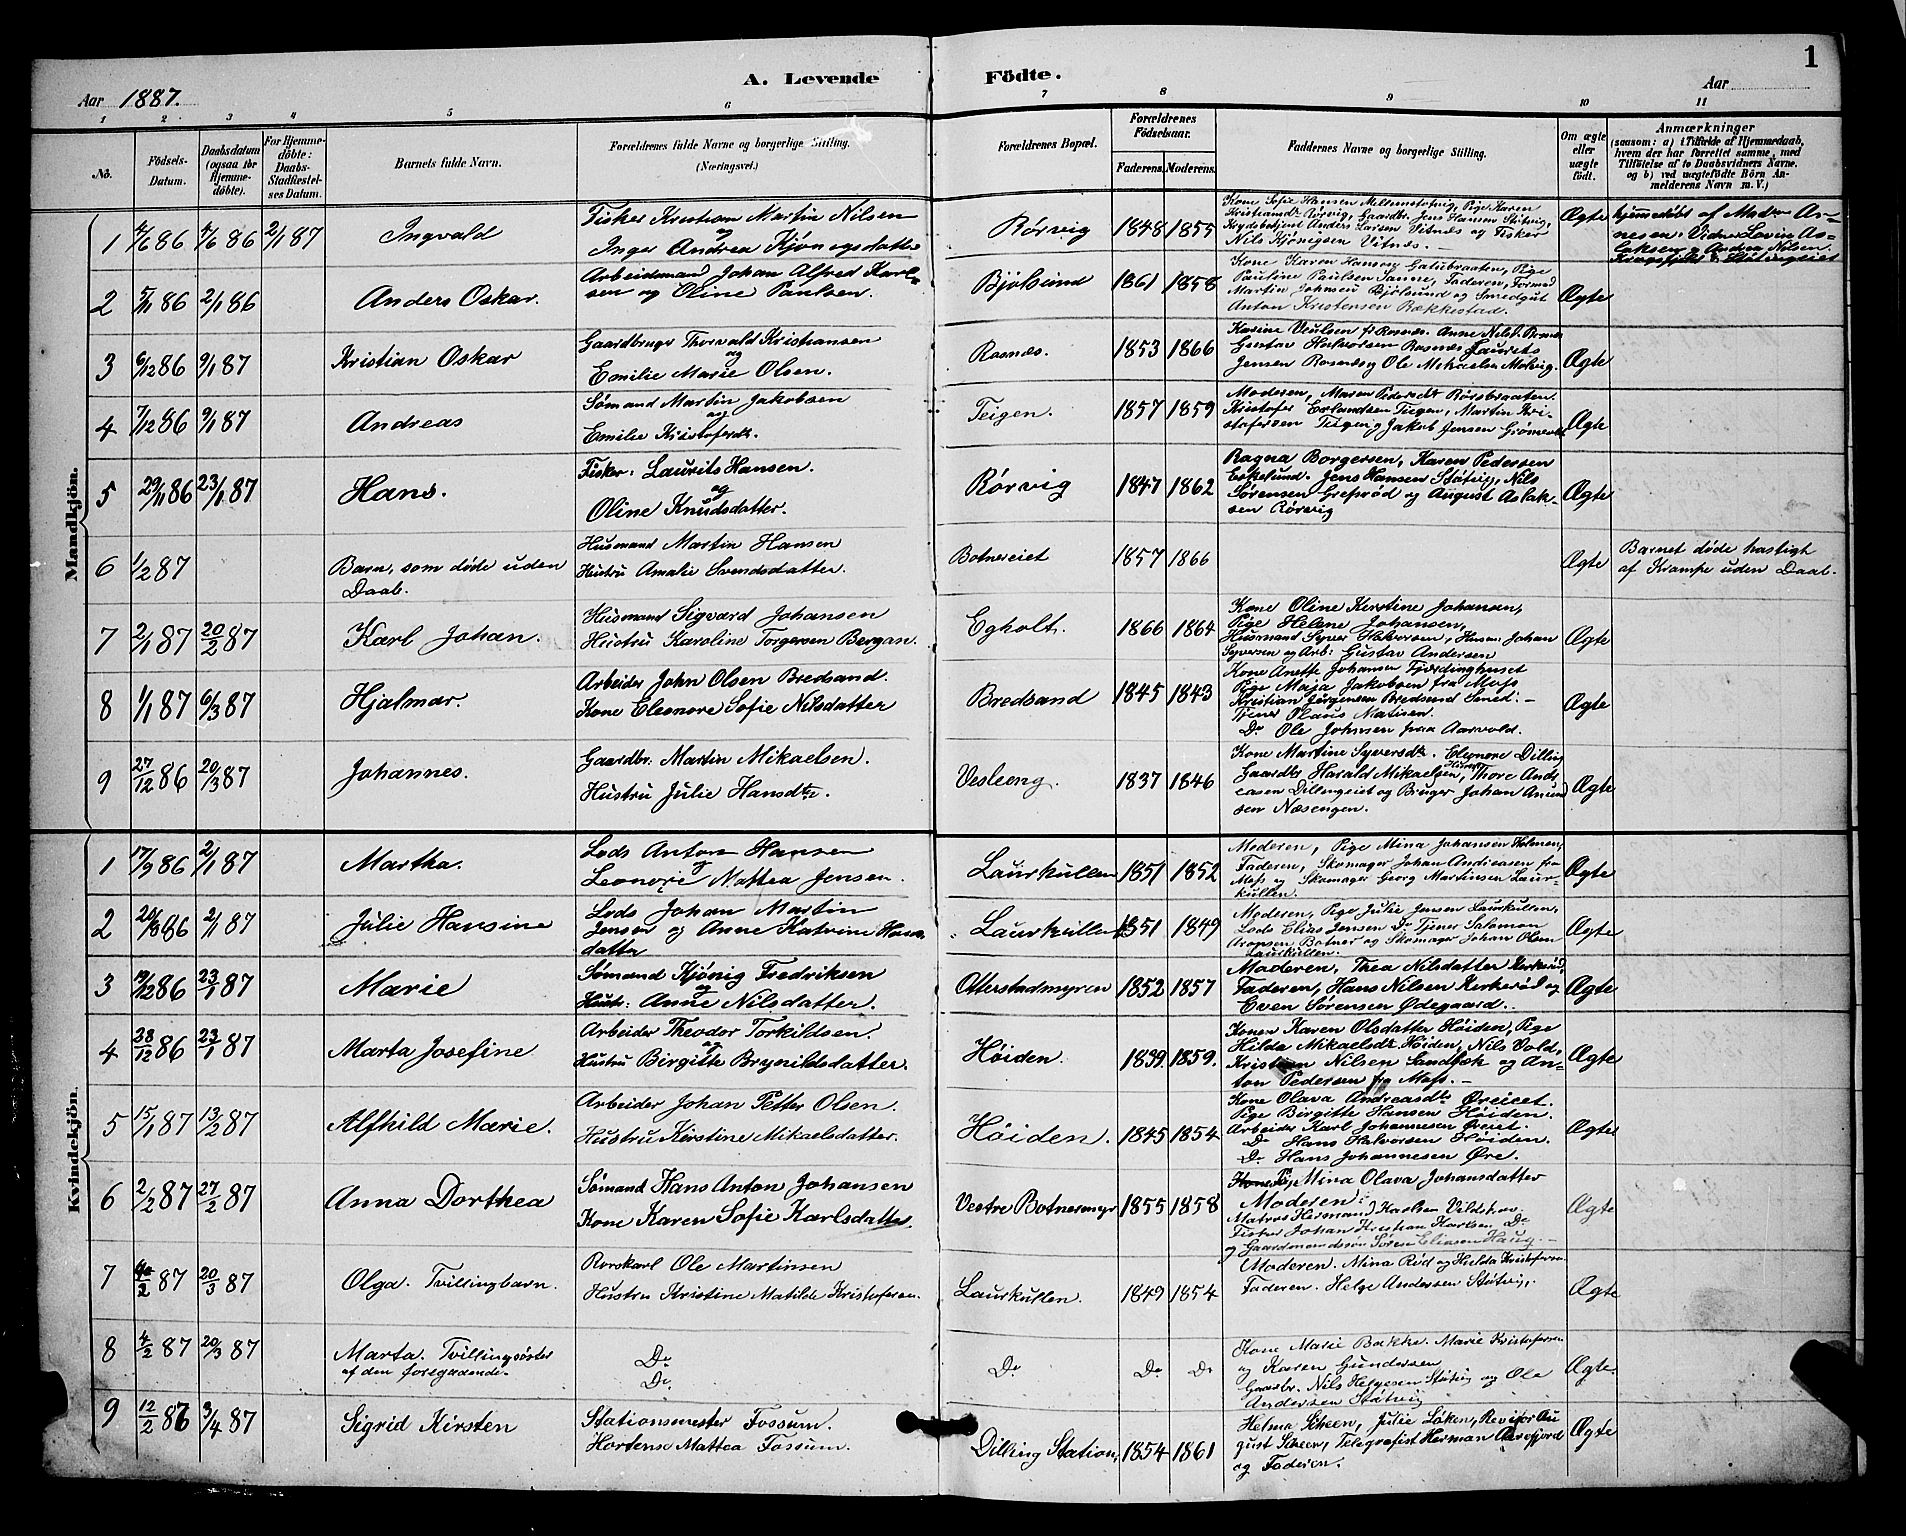 1
A. Levende Födte.
Aar 1887.
Aar
1 2 3 4 5 6 7 8 9 10 11
No.
Födsels-Datum.
Daabsdatum (ogsaa for Hjemme-döbte).
For Hjemme-döbte: Daabs-Stadfæstel-ses Datum.
Barnets fulde Navn.
Forældrenes fulde Navne og borgerlige Stilling. (Næringsvei.)
Forældrenes Bopæl.
Forældrenes Födselsaar.
Faderens. Moderens.
Faddernes Navne og borgerlige Stilling.
Om ægte eller uægte födt.
Anmærkninger
(saasom: a) i Tilfælde af Hjemmedaab, hvem der har forrettet samme, med Tilföielse af to Daabsvidners Navne. og b) ved uægtefödte Börn An-melderens Navn m. V.)
Mandkjön.
1 4/6 86 4/6 86 2/1 87 Ingvald
Fisker Kristian Martin Nilsen
og
Inger Andrea Kjønigsdatter
Rørvig 1848 1855
Kone Sofie Hansen Mellemstøtvig, Pige Karen
Kristiansdt Rørvig, Gaardbr. Jens Hansen Støtvig,
Anders Larsen Vitnæs og Fisker
Nils Kjønigsen Vitnæs. —
Ægte
hjemmedøbt af Madam Ar-
nesen. Vidner Lovise As-
laksen og Andrea Nilsen.
2 5/11 86 2/1 86 Anders Oskar.
Arbeidsmand Johan Alfred Karl-
sen og Oline Paulsen.
Bjølsund 1861 1858
Kone Karen Hansen Galubraaten, Pige
Pauline Paulsen Sanne, Faderen, Formand
Martin Johnsen Bjølsund og Smedgut
Anton Kristensen Bækkestad.
Ægte
3 6/12 86 9/1 87 Kristian Oskar
Gaardbruger Thorvald Kristiansen
og
Emilie Marie Olsen.
Rosnæs. 1853 1866
Karine Rosnæs. Anne Nilsd. Rosnæs
Gustav Halvorsen Rosnæs Laurits
Jensen Rosnæs og Ole Mikaelsen Molvig.
Ægte
4 7/12 86 9/1 87 Andreas
Sømand Martin Jakobsen
og
Emilie Kristoferdt.
Teigen. 1857 1859
Moderen, Maren Pedersdt Rørsbraaten.
Kristofer Erlandsen Teigen, Martin Kri-
stofersen Teigen og Jakob Jensen
Ægte
5 29/11 86 23/1 87 Hans.
Fisker: Laurits Hansen.
og
Oline Knudsdatter.
Rørvig 1847 1862
Ragna Borgersen, Karen Pedersen
Eskelund. Jens Hansen Støtvig, Nils
Sørensen Greprød og August Aslak-
sen Rørvig
Ægte
6 1/2 87 Barn, som døde uden
Daab.
Husmand Martin Hansen
Hustru Amalie Svendsdatter.
Botnereiet 1857 1866
Ægte
Barnet døde hastigt
af Krampe uden Daab.
7 2/1 87 20/2 87 Karl Johan.
Husmand Sigvard Johansen
Hustru Karoline Torgersen Bergan.
Egholt. 1866 1864
Kone Oline Kerstine Johansen,
Pige Helene Johansen,
Husmand Syver Halvorsen, Husm. Johan
Syversen og Arb: Gustav Andersen
Ægte
8 1/1 87 6/3 87 Hjalmar.
Arbeider John Olsen Bredsand.
Kone Eleonore Sofie Nilsdatter
Bredsand 1845 1843
Kone Anette Johansen Fjerdinghuset
Pige Maja Jakobsen fra Moss
Kristian Jørgensen Bredsand Smed. —
Tjener Olaus Matisen.
Do Ole Johnsen fraa Aarvold.
Ægte
9 27/12 86 20/3 87 Johannes.
Gaardbr. Martin Mikaelsen.
Hustru Julie Hansdtr.
Vesleeng. 1837 1846
Kone Martine Syversdt. Elenore Dilling
Gaardbr Harald Mikaelsen, Thore And-
reasen Dillengeiet og Bruger Johan Amund
sen Næsengen.
Ægte
Kvindekjön.
1 17/9 86 2/1 87 Martha.
Lods Anton Hansen
og
Leonore Mattea Jensen.
Laurkullen 1851 1852
Moderen, Pige Mina Johansen Holmen,
Faderen, Skomager Johan Andreasen fra
Moss og Skomager Georg Martinsen Laur-
kullen.
Ægte
2 20/9 86 2/1 87 Julie Hansine
Lods Johan Martin
Jensen og Anne Katrine Hans-
datter
Laurkullen 1851 1849
Moderen, Pige Julie Jensen Laurkullen,
Lods Elias Jensen Do Tjener Salomon
Aronsen Botner og Skomager Johan Olsen
Laurkullen.
Ægte
3 19/12 86 23/1 87 Marie
Sømand Kjønig Fredriksen
og
Hustr: Anne Nilsdatter.
Otterstadmyren 1852 1857
Moderen, Thea Nilsdatter Kerkerød,
Faderen, Hans Nilsen Kerkerød og
Even Sørensen Ødegaard.
Ægte
4 28/12 86 23/1 87 Marta Josefine
Arbeider Theodor Torkildsen.
og
Hustru Birgitte Brynildsdatter.
Høiden. 1839 1859.
Konen Karen Olsdatter Høiden, Pige
Hilda Mikaelsdt Høiden, Nils Vold,
Kristian Nilsen Sandbæk og An-
ton Pedersen fra Moss. —
Ægte
5 15/1 87 13/2 87 Alfhild Marie.
Arbeider Johan Petter Olsen.
Hustru Kerstine Mikaelsdatter.
Høiden. 1845 1854
Kone Olava Andreasdt Øreiet.
Pige Birgitte Hansen Høiden.
Arbeider Karl Johannesen Øreiet.
Do Hans Halvorsen Høiden.
Do Hans Johannesen Øre.
Ægte
6 2/2 87 27/2 87 Anna Dorthea
Sømand Hans Anton Johansen
Kone Karen Sofie Karlsdatter
Vestre Botnesmyr 1855 1858
Mina Olava Johansdatter
Moderen.
Matros Hermand Karlsen Vildskov.
Fisker Johan Kristian Karlsen Do
og Gaardmandssøn Søren Eliasen Haug. —
Ægte
7 2 87 20/3 87 Olga. Tvillingbarn.
Rorskarl Ole Martinsen
Hustru Kristine Matilde Kristofersen.
Laurkullen. 1849 1854
Moderen. Mina Rød og Hulda Kristofersen
Faderen. Helge Andersen Støtvig.
Ægte
8 4/2 87 20/3 87 Marta. Tvillingsøster
af den foregaaende.
Do
Do
Do Do Do
Kone Marie Bakke. Marie Kristofersen
og Karen Gundersen
Gaardbr. Nils Helgesen Støtvig og Ole
Andersen Støtvig
Ægte.
9 12/2 87 3/4 87 Sigrid Kirsten
Stationsmester Fossum.
Hortense Mattea Fossum.
Dilling Station, 1854 1861
Helma Scheen, Julie Løken, Revisor Au
gust Scheen, Telegrafist Herman
og Faderen.
Ægte